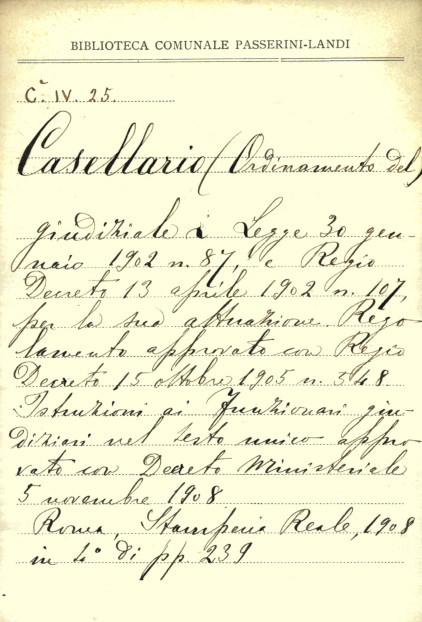 BIBLIOTECA COMUNALE PASSERINI-LANDI
C. IV. 25.
Casellario (Ordinamento del)
giudiziale Legge 30 gen-
naio 1902 n. 87, e Regio
Decreto 13 aprile 1902 n. 107,
per la sua attuazione. Rego
lamento approvato con Regio
Decreto 15 ottobre 1905 n. 548
Istruzioni ai Funzionari giu-
diziari nel testo unico appro
vato con Decreto Ministeriale
5 novembre 1908
Roma, Stamperia Reale, 1908
in 4° di pp. 239